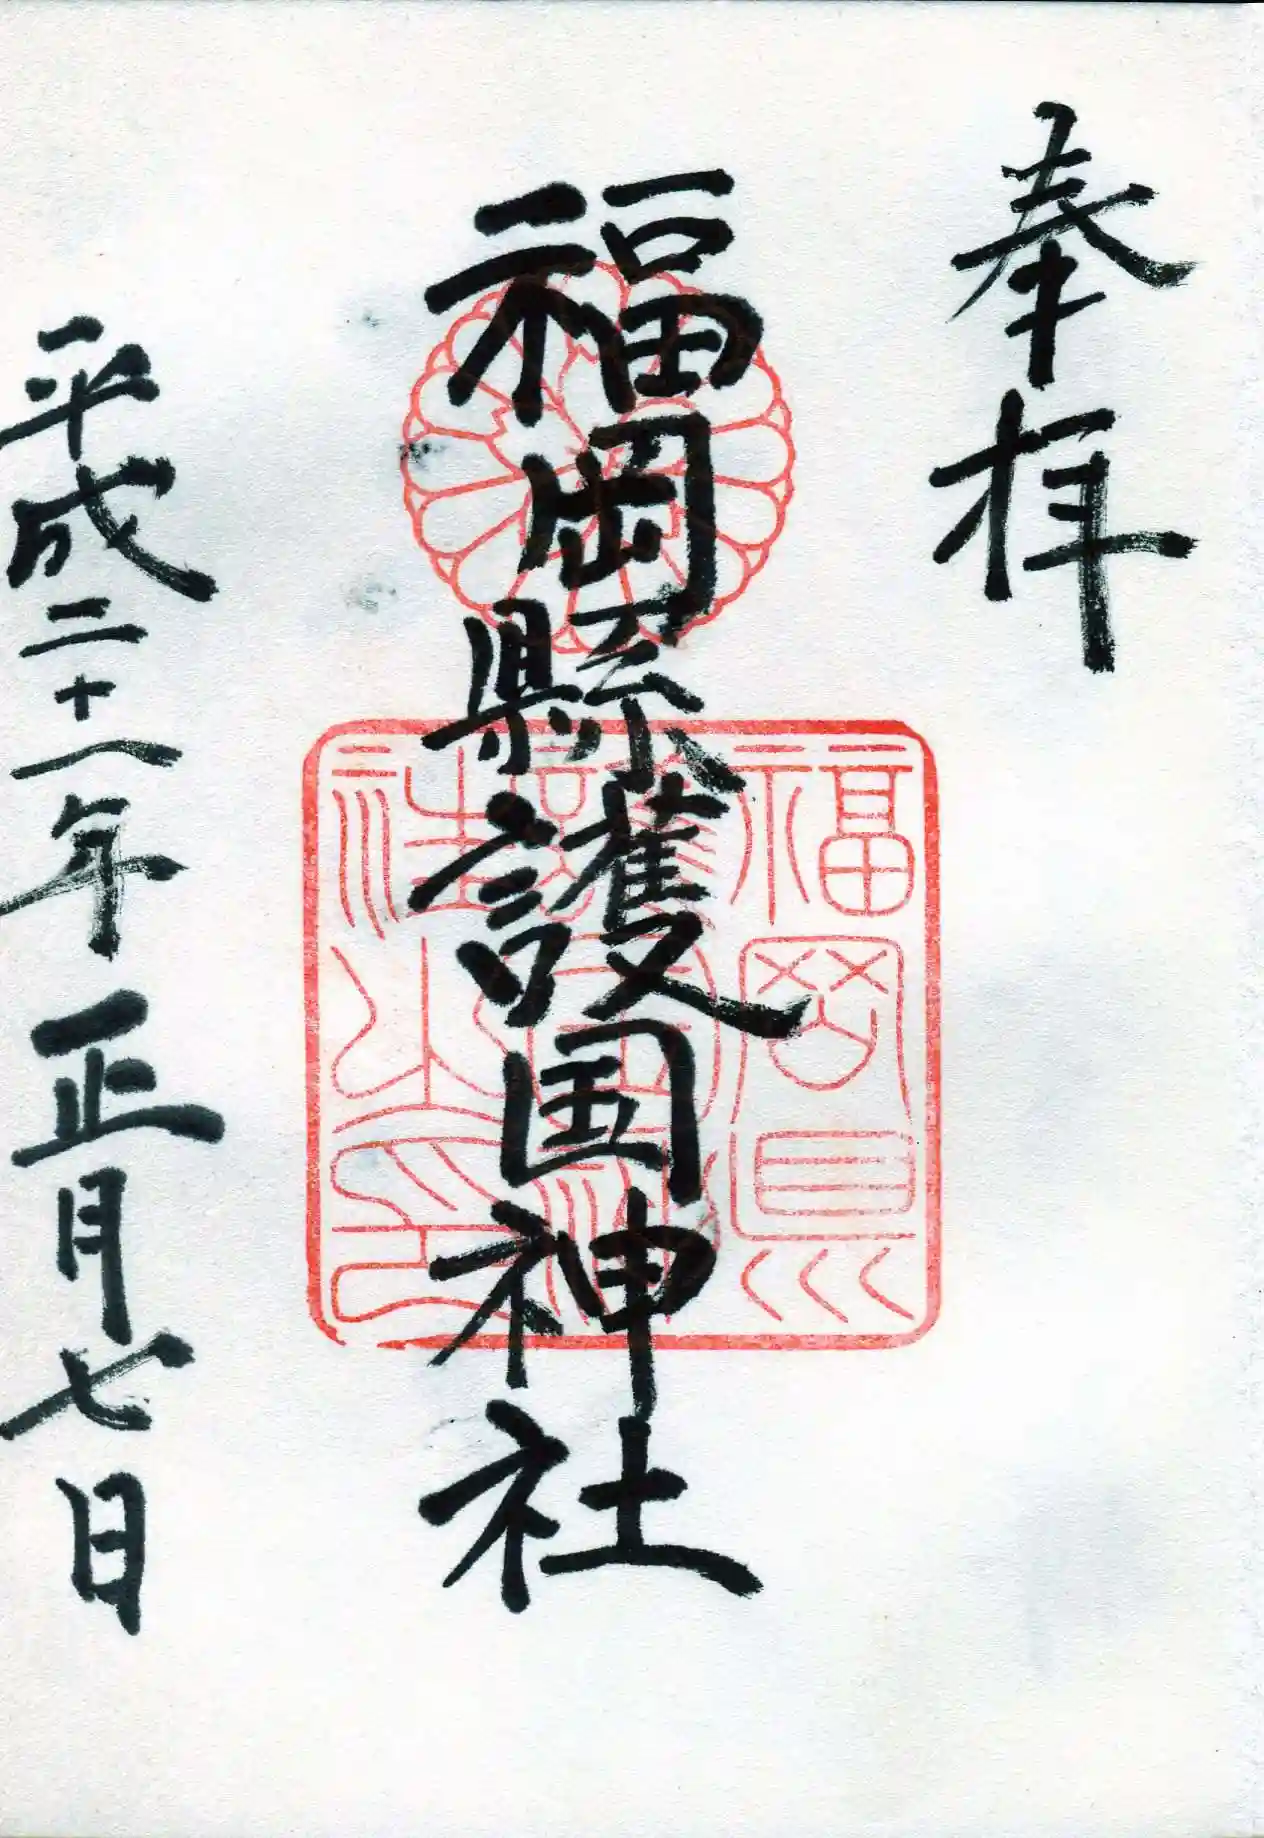 奉拝
福岡縣護国神社
平成二十一年正月七日
福岡県
護國神
社之印